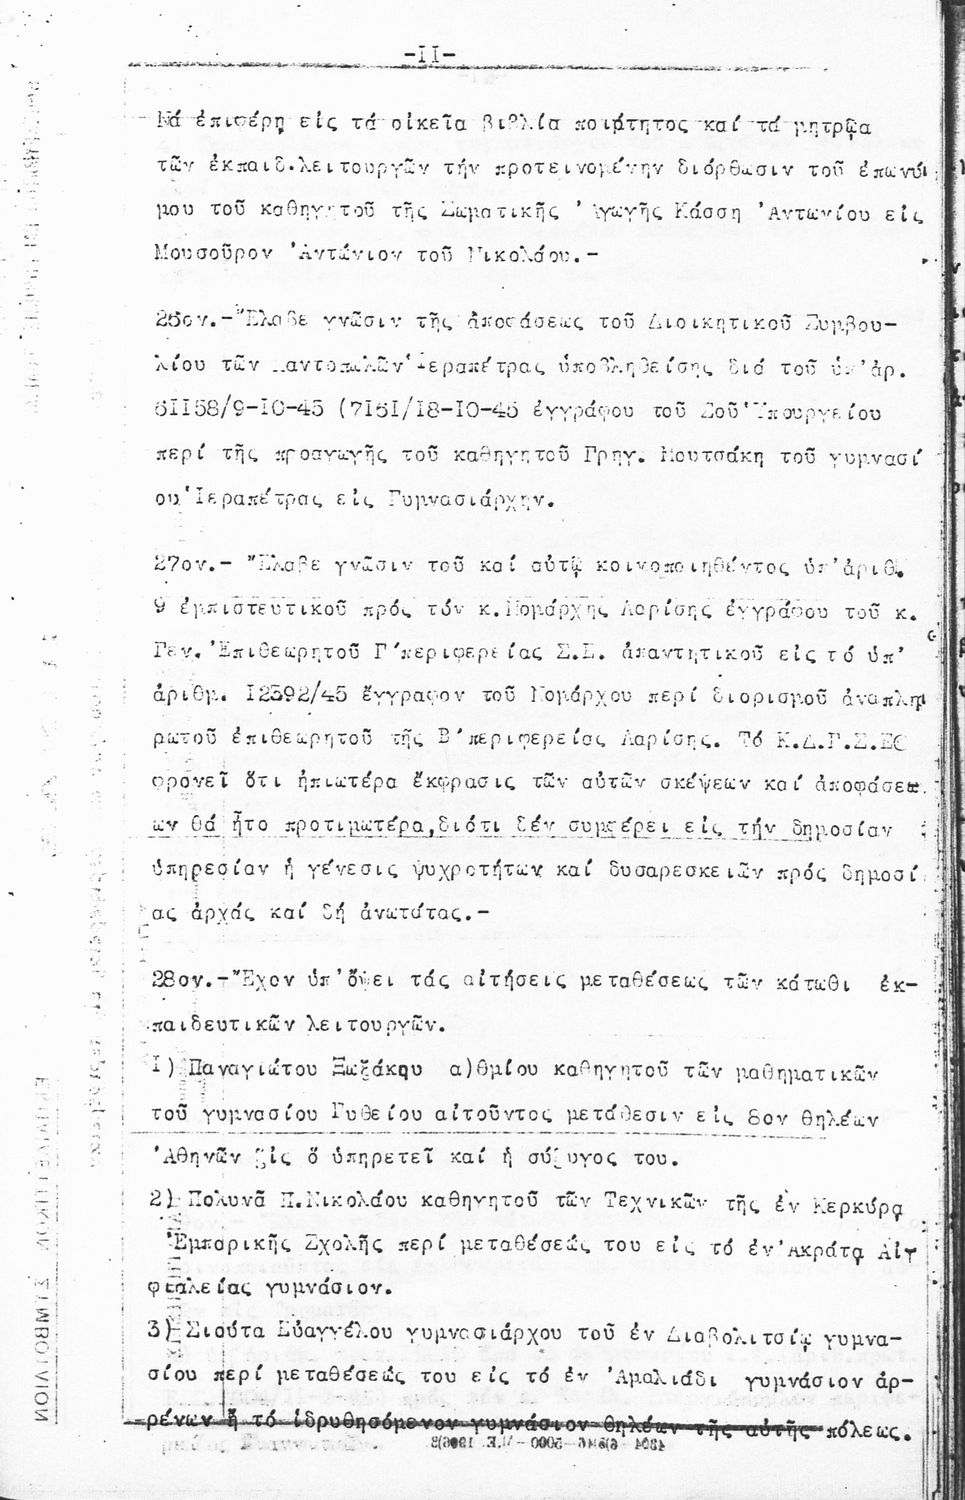 -II-
Νά ἐπιφέρῃ εἰς τά οἰκεῖα βιβλία ποιότητος καί τά μητρῷα
τῶν ἐκπαιδ.λειτουργῶν τήν προτεινομένην διόρθωσιν τοῦ ἐπωνύ
μου τοῦ καθηγητοῦ τῆς Σωματικῆς 'Αγωγῆς Κάσση 'Αντωνίου εἰς
Μουσοῦρον 'Αντώνιον τοῦ Νικολάου.-
26ον.-"Ελαβε γνῶσιν τῆς ἀποφάσεως τοῦ Διοικητικοῦ Συμβου-
λίου τῶν Παντοπωλῶν 'Ιεραπέτρας ὑποβληθείσης διά τοῦ ὑπ'ἀρ.
61158/9-10-45 (7151/18-10-45 ἐγγράφου τοῦ Σοῦ 'Υπουργείου
περί τῆς προαγωγῆς τοῦ καθηγητοῦ Γρηγ. Μουτσάκη τοῦ γυμνασί
ου 'Ιεραπέτρας εἰς Γυμνασιάρχην.
27ον.- "Ελαβε γνῶσιν τοῦ καί αὐτῷ κοινοποιηθέντος ὑπ'ἀριθ.
9 ἐμπιστευτικοῦ πρός τόν κ.Νομάρχης Λαρίσης ἐγγράφου τοῦ κ.
Γεν. 'Επιθεωρητοῦ Γ'περιφερείας Σ.Ε. ἀπαντητικοῦ εἰς τό ὑπ'
ἀριθμ. I2392/45 ἔγγραφον τοῦ Νομάρχου περί διορισμοῦ ἀναπλη
ρωτοῦ ἐπιθεωρητοῦ τῆς Β'περιφερείας Λαρίσης. Τό Κ.Δ.Γ.Σ.ΕΘ
φρονεῖ ὅτι ἠπιωτέρα ἔκφρασις τῶν αὐτῶν σκέψεων καί ἀποφάσε
ων θά ἦτο προτιμωτέρα,διότι δέν συμφέρει εἰς τήν δημοσίαν
ὑπηρεσίαν ἡ γένεσις ψυχροτήτων καί δυσαρεσκειῶν πρός δημοσί
ας ἀρχάς καί δή ἀνωτάτας.-
28ον.-"Εχον ὑπ'ὄψει τάς αἰτήσεις μεταθέσεως τῶν κάτωθι ἐκ-
παιδευτικῶν λειτουργῶν.
I) Παναγιώτου Ξωξάκου α)θμίου καθηγητοῦ τῶν μαθηματικῶν
τοῦ γυμνασίου Γυθείου αἰτοῦντος μετάθεσιν εἰς 8ον θηλέων
'Αθηνῶν εἰς ὅ ὑπηρετεῖ καί ἡ σύζυγος του.
2) Πολυνᾶ Π.Νικολάου καθηγητοῦ τῶν Τεχνικῶν τῆς ἐν Κερκύρᾳ
'Εμπορικῆς Σχολῆς περί μεταθέσεώς του εἰς τό ἐν'Ακράτᾳ Αἰγ
φιαλείας γυμνάσιον.
3) Σιούτα Εὐαγγέλου γυμνασιάρχου τοῦ ἐν Διαβολιτσίῳ γυμνα-
σίου περί μεταθέσεώς του εἰς τό ἐν 'Αμαλιάδι γυμνάσιον ἀρ-
ρένων ἤ τό ἱδρυθησόμενον γυμνάσιον θηλέων τῆς αὐτῆς πόλεως.